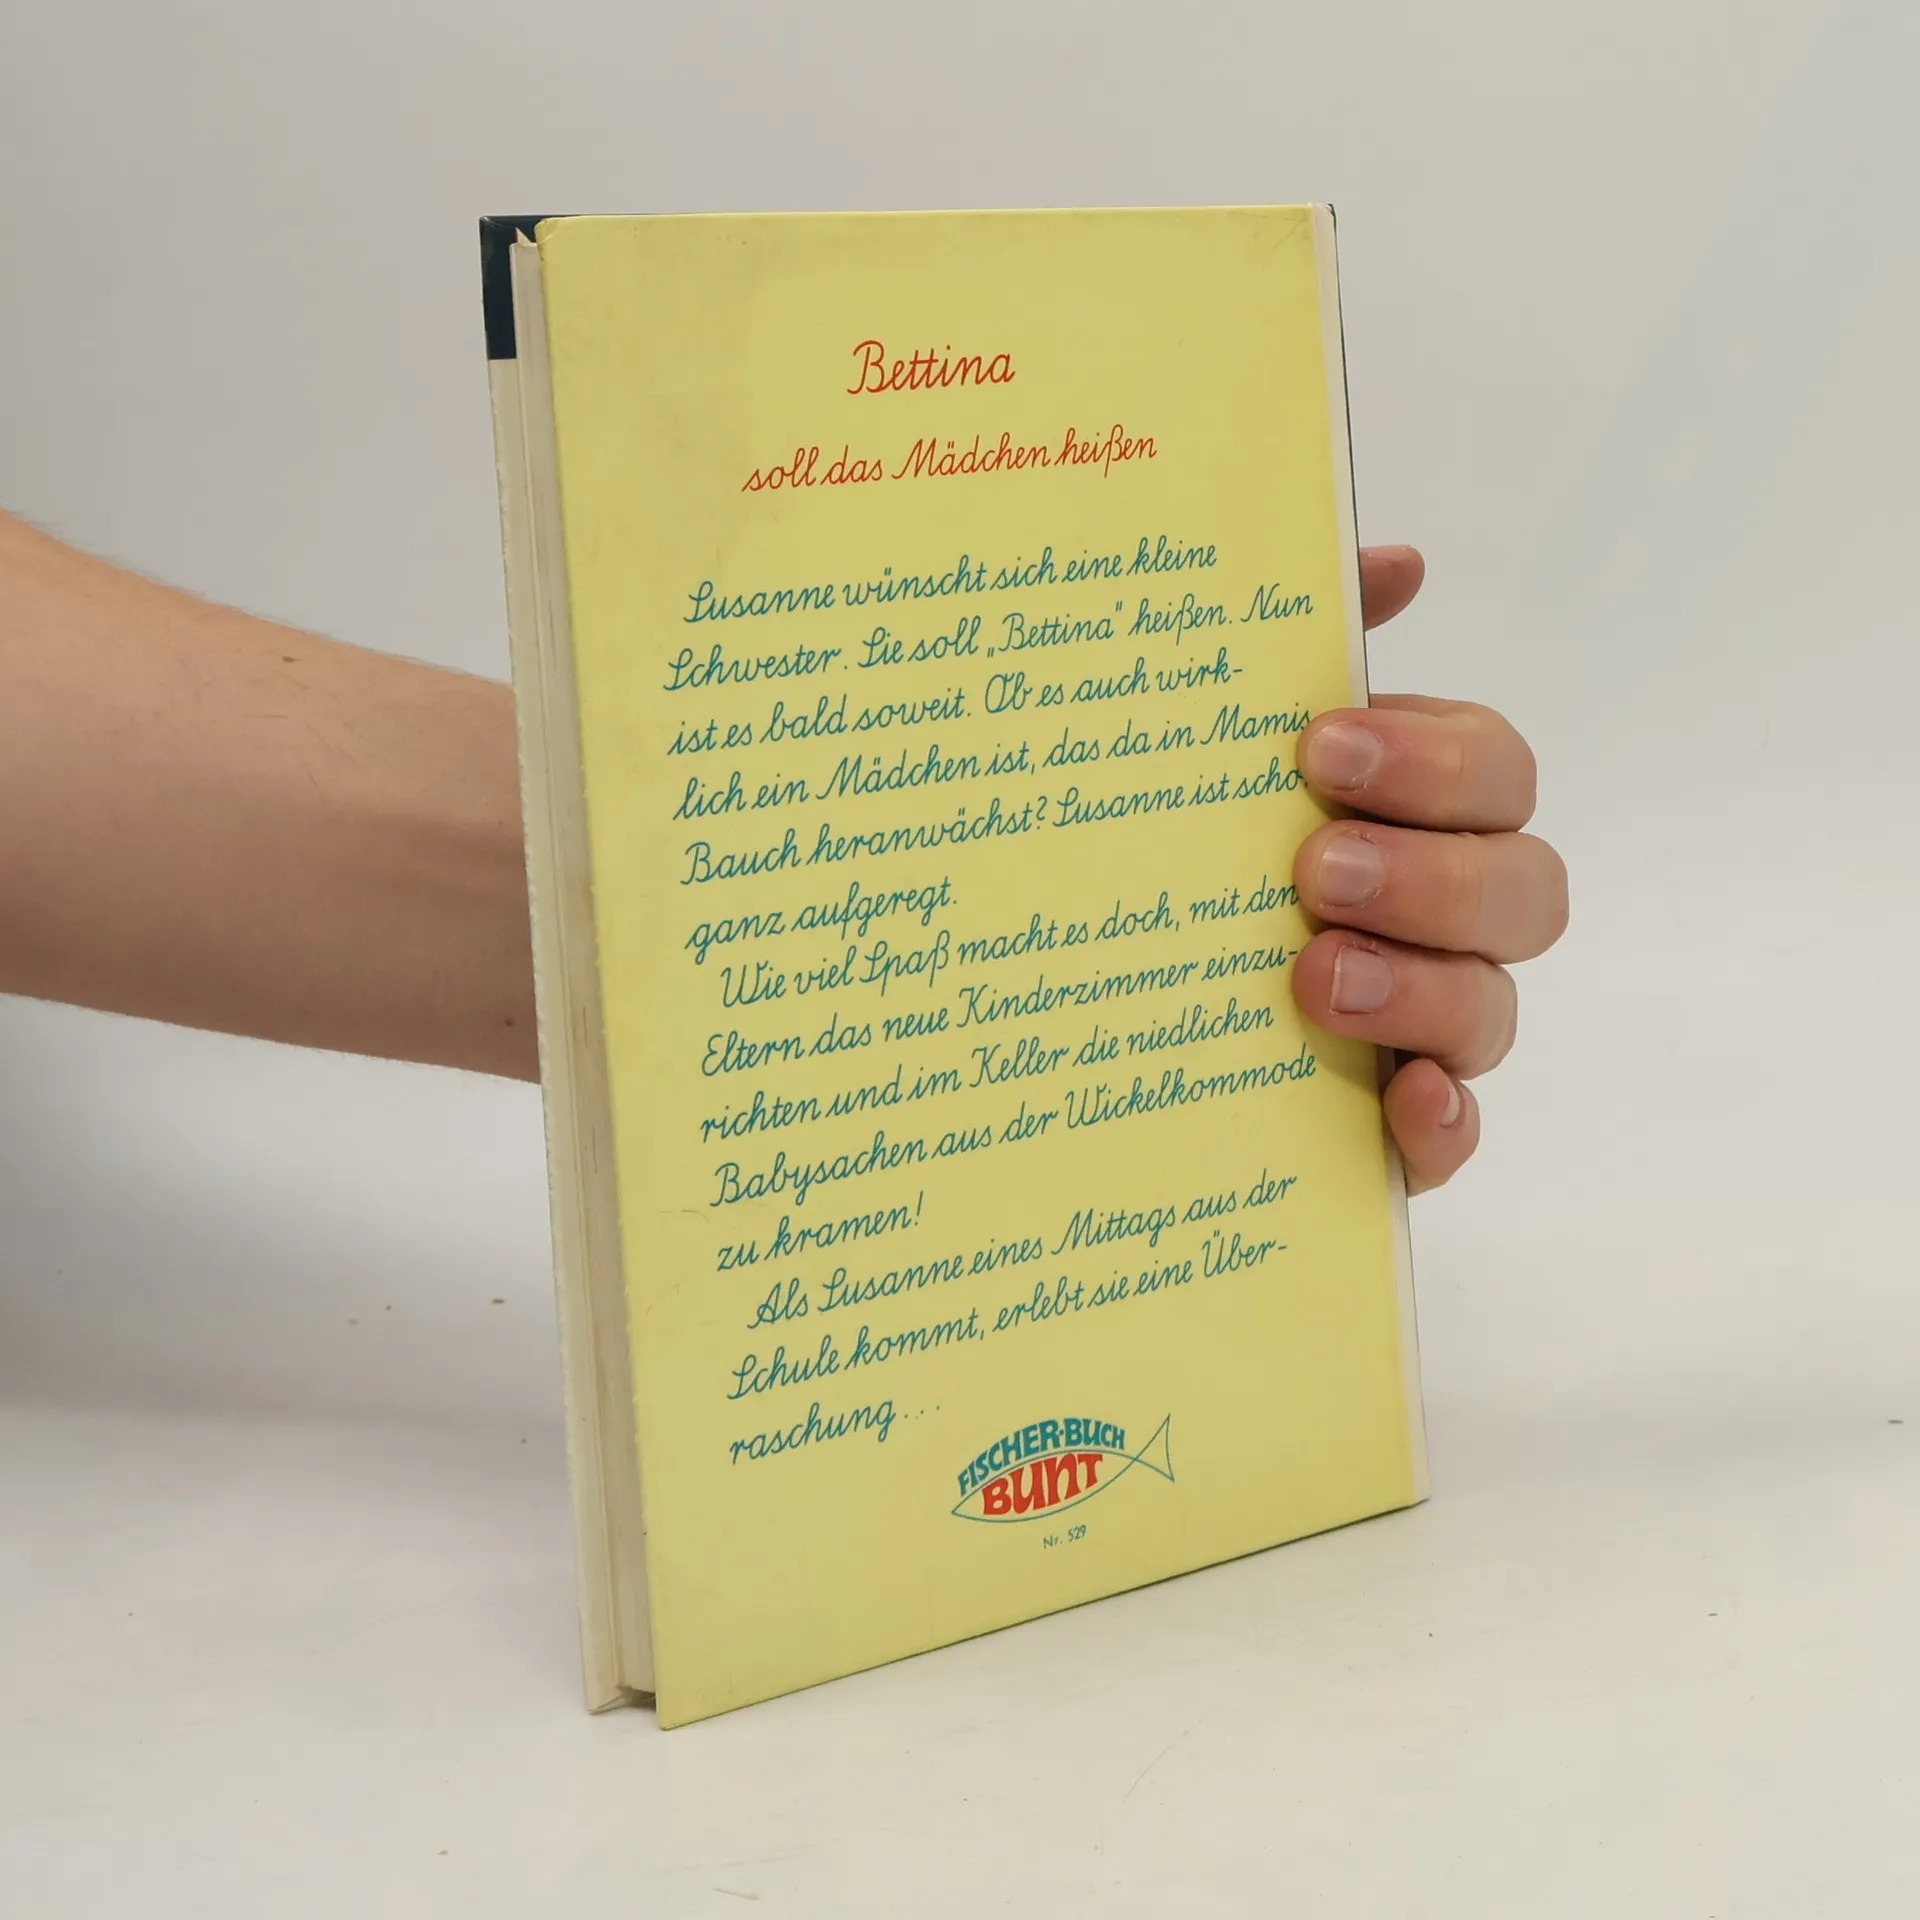 Bettina
soll das Mädchen heißen
Susanne wünscht sich eine kleine
Schwester. Sie soll „Bettina" heißen. Nun
ist es bald soweit. Ob es auch wirk-
lich ein Mädchen ist, das da in Mamis
Bauch heranwächst? Susanne ist scho
ganz aufgeregt.
Wie viel Spaß macht es doch, mit den
Eltern das neue Kinderzimmer einzu-
richten und im Keller die niedlichen
Babysachen aus der Wickelkommode
zu kramen!
Als Susanne eines Mittags aus der
Schule kommt, erlebt sie eine Über-
raschung...
FISCHER-BUCH
BUNT
Nr. 529